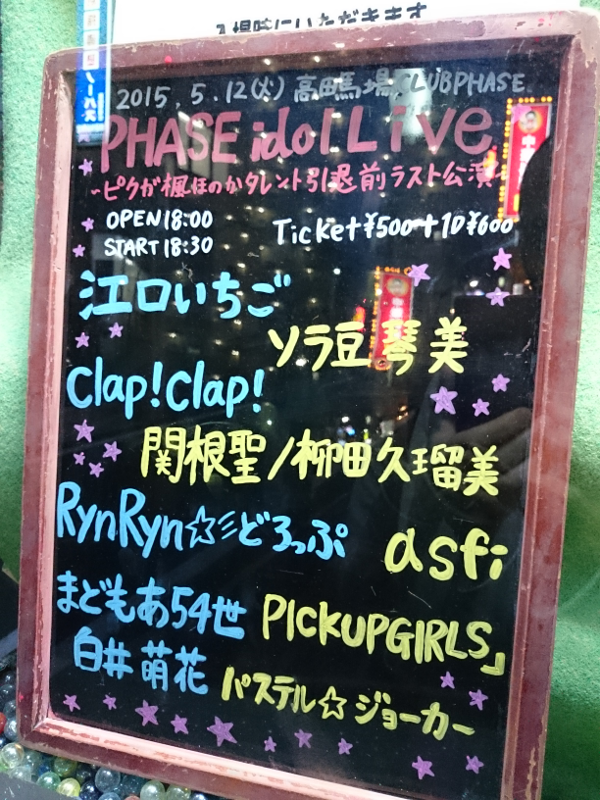 入場時にいただきます
2015.5.12(火) 高田馬場 CLUBPHASE
PHASE idol Live
~ピクが楓ほのかタレント引退前ラスト公演~
OPEN 18:00
START 18:30
Ticket ¥500+1D¥600
江口いちご
ソラ豆琴美
Clap!Clap!
関根聖/柳田久瑠美
RynRyn☆ミどろっぷ
asfi
まどもあ54世
PICKUPGIRLS」
白井萌花
パステル☆ジョーカー